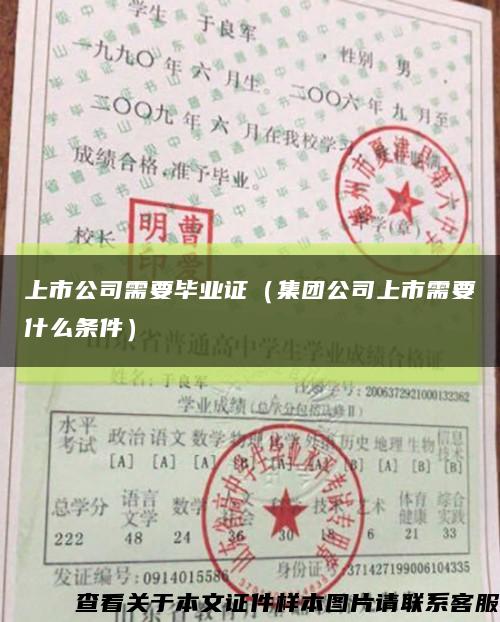 学生 于良军 ，性别 男 ，
一九九〇 年 六 月生。二〇〇六 年 九 月至
二〇〇九 年 六 月在我校学习
成绩合格,准予毕业。
德州市夏津县第六中学
校长
曹爱明印
学(章)
上市公司需要毕业证（集团公司上市需要
什么条件）
山东省普通高中学生学业成绩合格证
姓名:于良军 学号: 2006372921000132362
学业成绩(总学分包括必修Ⅱ)
水平考试 政治 语文 数学 物理 化学 外语 历史 地理 生物 信息技术
[A] [A] [A] [B] [A] [B] [A] [B] [B]
总学分 语言文学 数学 科学 技术 艺术 体育健康 综合实践
222 48 24 36 30 18 6 21 33
发证编号: 0914015586 身份证号: 371427199006104335
查看关于本文证件样本图片请联系客服